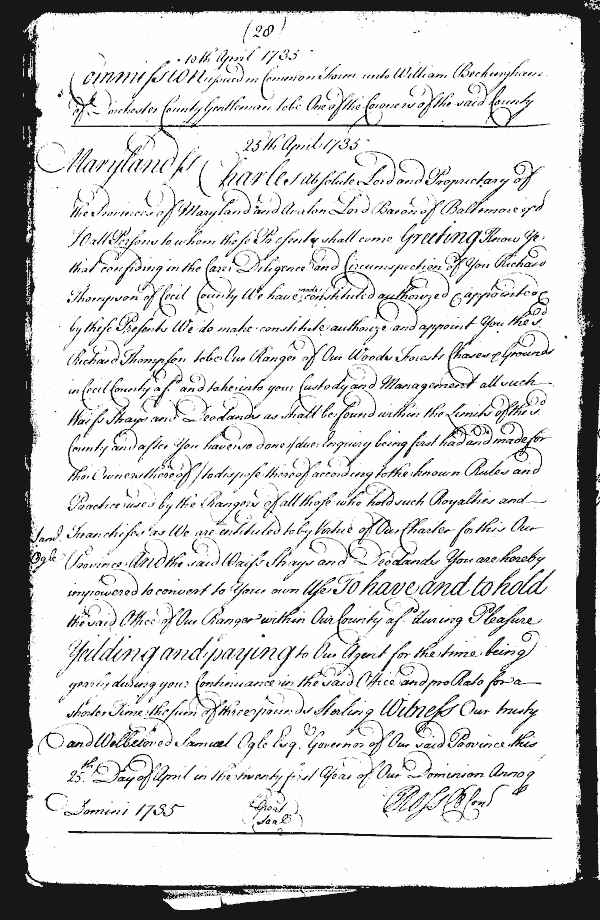 (28)
10th April 1735
Commission issued in Common Form unto William Beckingham
of Dorchester County Gentleman to be One of the Coroners of the said County
25th April 1735
Maryland ss Charles Absolute Lord and Proprietary of
the Provinces of Maryland and Avalon Lord Baron of Baltemore &ca
To all Persons to whom these Presents shall come Greeting Know Ye
that confiding in the Care Diligence and Circumspection of You Richard
Thompson of Cecil County We have made constituted authorized & appointed &
by these Presents We do make constitute authorize and appoint You the sd
Richard Thompson to be Our Ranger of Our Woods Forests Chases & Grounds
in Cecil County afd and take into your Custody and Management all such
Waifs Strays and Deodands as shall be found within the Limits of the sd
County and after You have so done (due Enquiry being first had and made for
the Owners thereof) to dispose thereof according to the known Rules and
Practice used by the Rangers of all those who hold such Royalties and
Franchises as We are entituled to by Virtue of Our Charter for this Our
Province And the said Waifs Strays and Deodands You are hereby
impowered to convert to Your own Use To have and to hold
the said Office of Our Ranger within Our County afd during Pleasure
Yeilding and paying to Our Agent for the time being
yearly during your Continuance in the said Office and pro Rato for a
shorter Time the sum of three pounds Sterling Witness Our trusty
and Welbeloved Samuel Ogle Esq. Governor of Our said Province this
25th Day of April in the twenty first Year of Our Dominion Annoq
Domini 1735
Great
Seal
Saml
Ogle